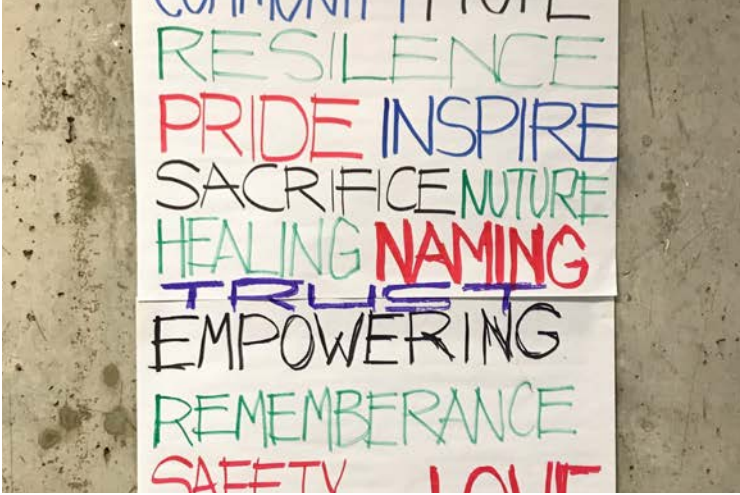 COMMUNITY HOPE
RESILENCE
PRIDE INSPIRE
SACRIFICE NUTURE
HEALING NAMING
TRUST
EMPOWERING
REMEMBERANCE
SAFETY LOVE